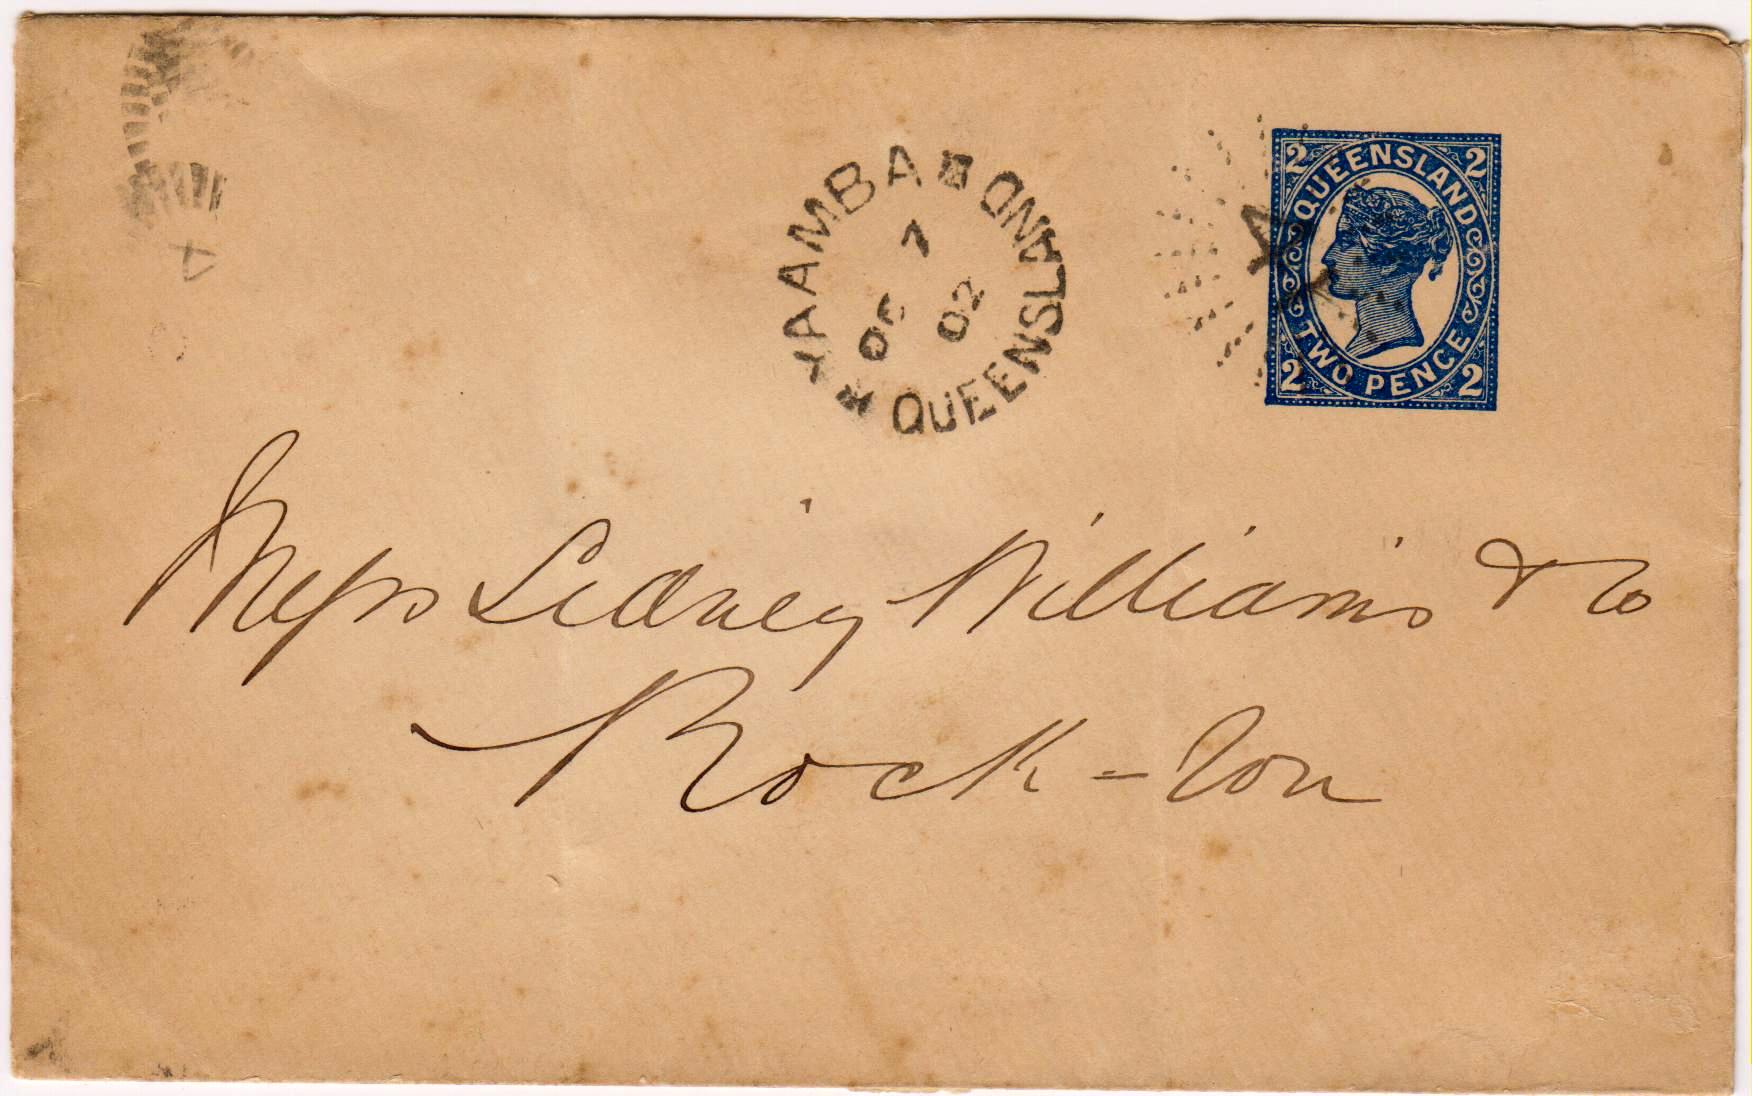 2 QUEENSLAND 2
2 TWO PENCE 2
YAAMBA
QUEENSLAND
1
02
Messrs Sidney Williams & Co
Rock=ton